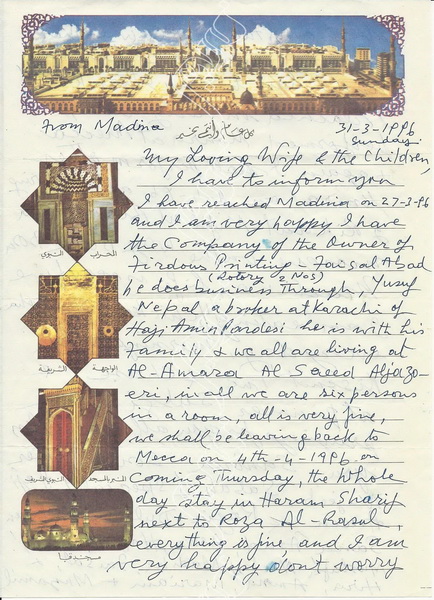 From Madina
31-3-1996
Sunday
My Loving Wife & the Children,
I have to inform you
I have reached Madina on 27-3-96
and I am very happy I have
the Company of the Owner of
Firdous Printing - Faisal Abad
(Rotory 2 Nos)
he does business through, Yusuf
Nepal a broker at Karachi of
Haji Amin Pardesi he is with his
Family & we all are living at
Al-Amara Al Saeed Aljazo-
eri, in all we are six persons
in a room, all is very fine,
we shall be leaving back to
Mecca on 4th-4-1996 on
Coming Thursday, the whole
day stay in Haram Sharif
next to Roza Al-Rasul,
everything is fine and I am
very happy don't worry
المحراب النبوي
الواجهة الشريفة
المنبر بالمسجد النبوي الشريف
مسجد قبا